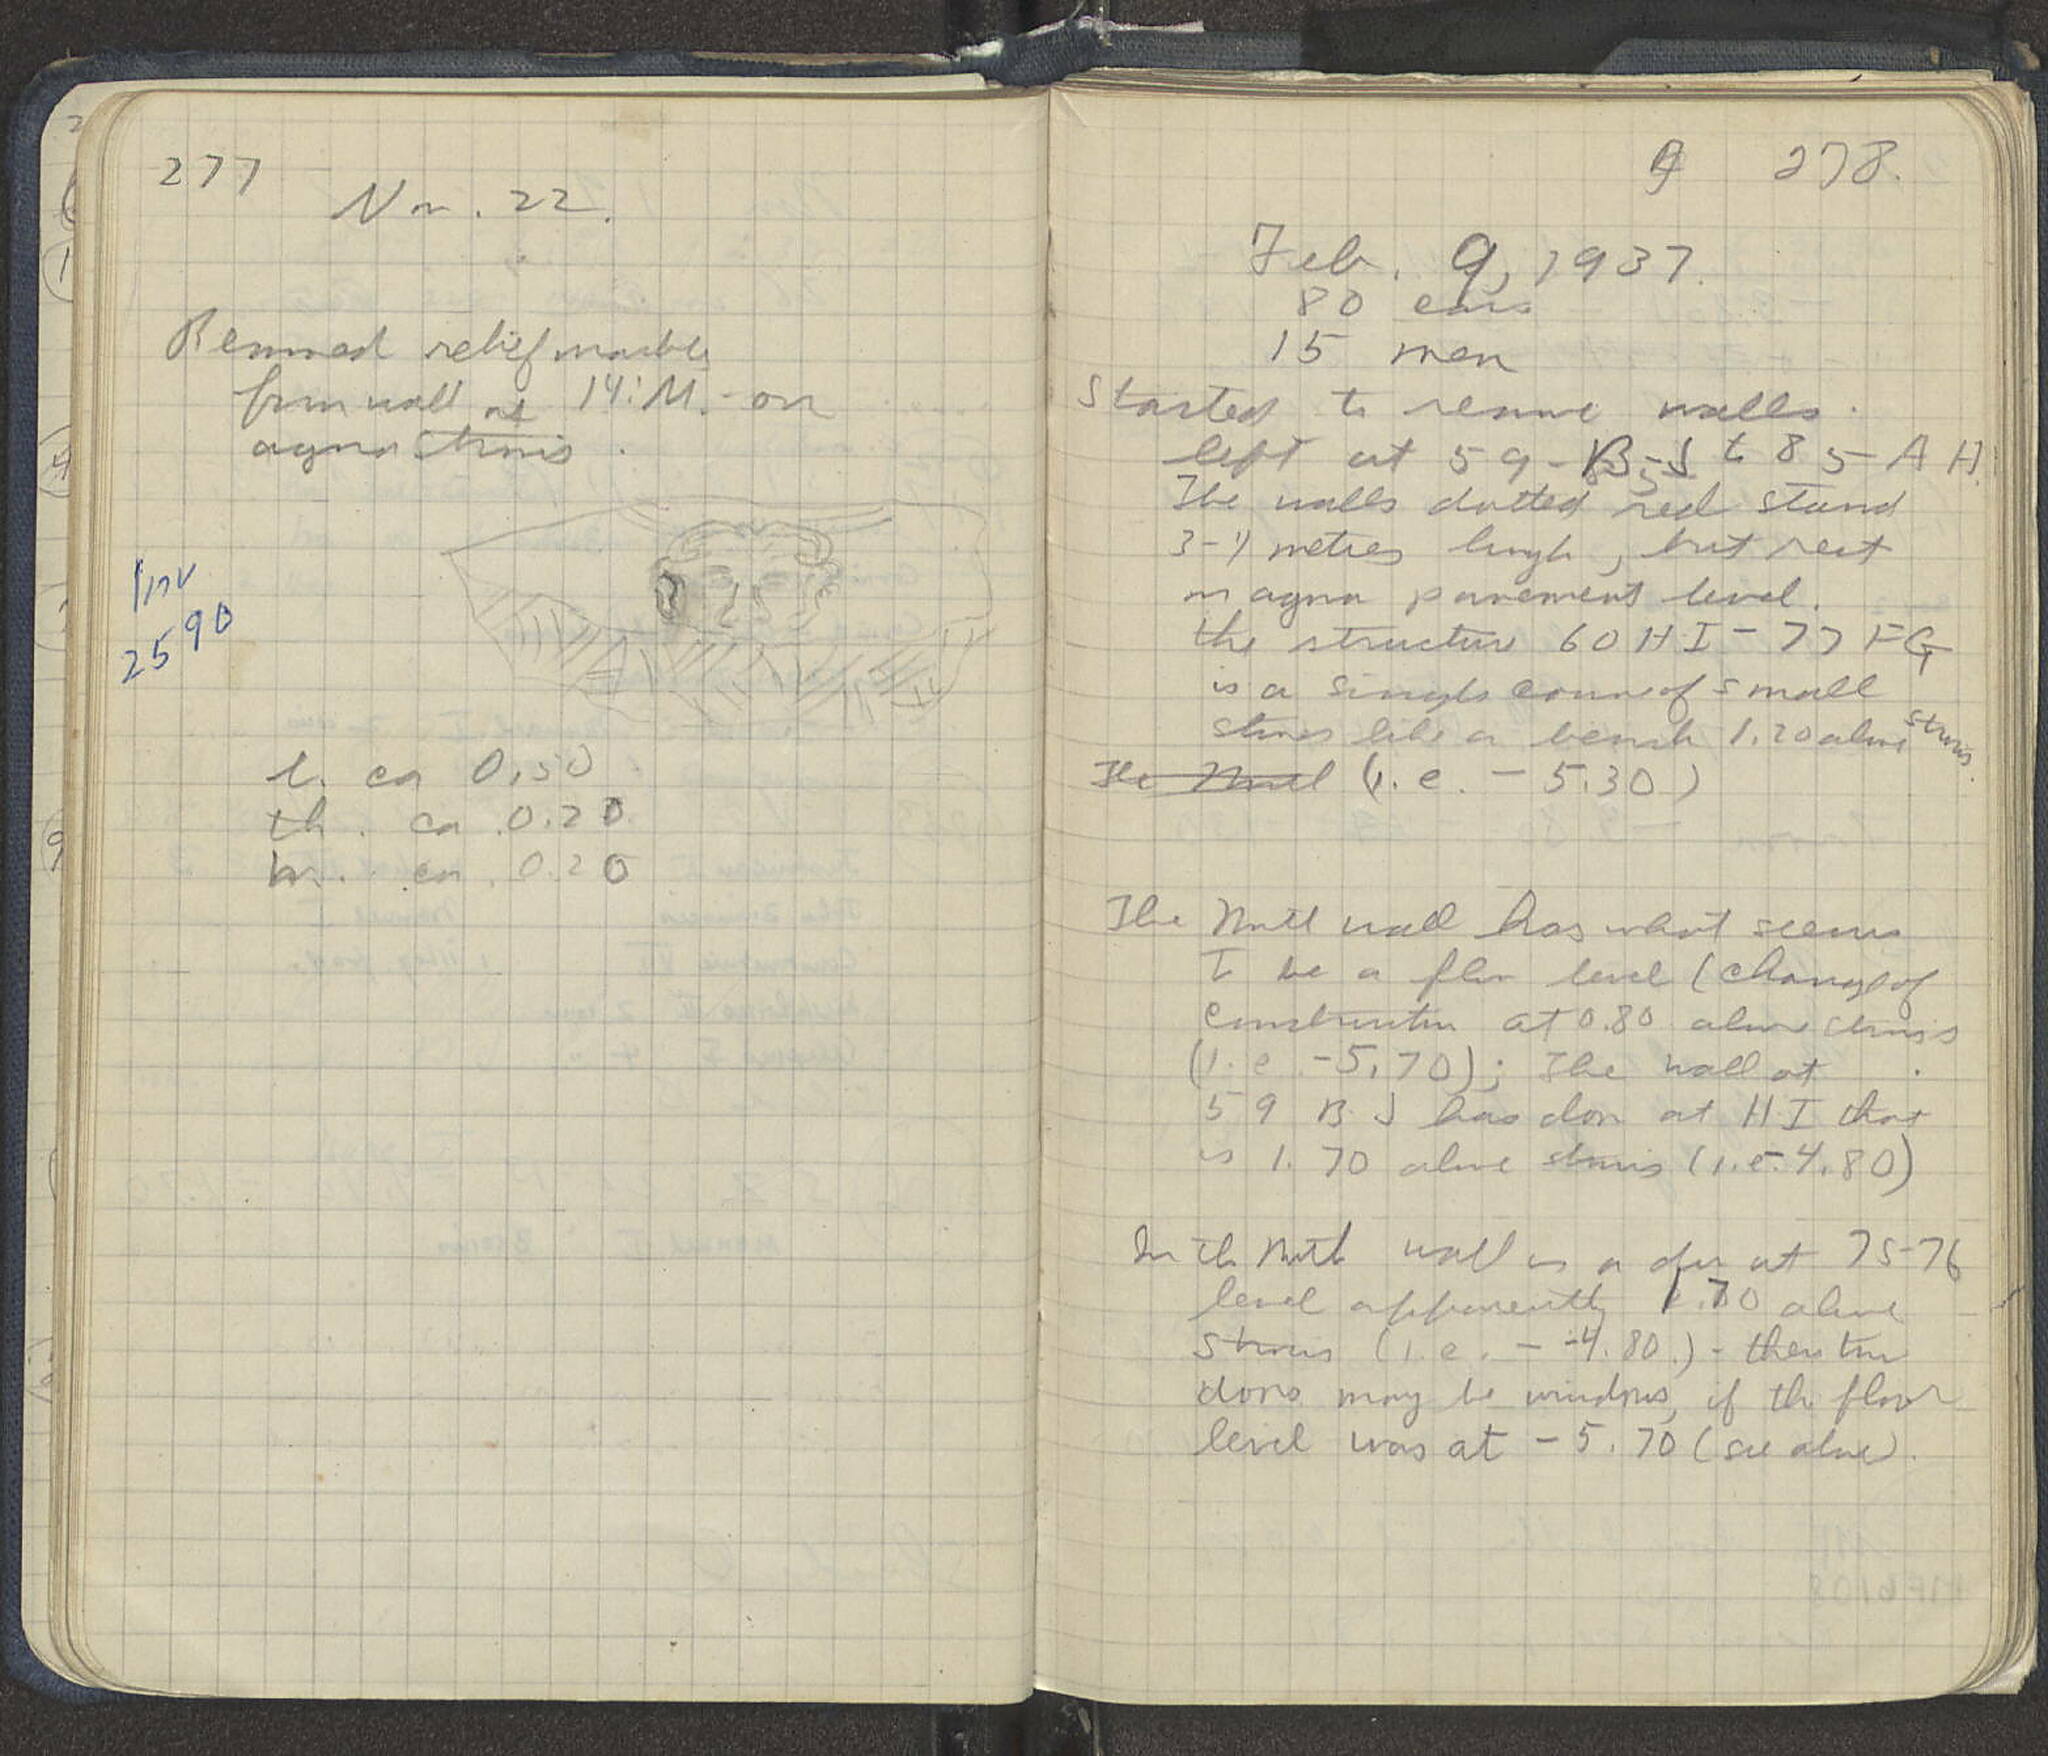 277
Nov. 22.
Removed relief marble
from wall at 14:M. - on
agora stosis.
Inv
2590
l. ca 0,50
th. ca 0.20
h. ca 0.20
278.
Feb. 9, 1937.
80 cars
15 men
Started to remove walls
left at 59-B-J to 85-A H.
The walls dotted red stand
3-4 metres high, but rest
on agora pavement level.
the structure 60 H I - 77 FG
is a single course of small
stones like a bench 1.20 above
The North (i.e. - 5.30)
The North wall has what seems
to be a floor level (change of
construction at 0.80 above
(i.e. -5.70); The wall at
59 B J has door at H I that
is 1.70 above (i.e. 4.80)
In the North wall is a door at 75-76
level apparently 1.70 above
(i.e. - -4.80.) - these two
doors may be windows, if the floor
level was at - 5.70 (see above).